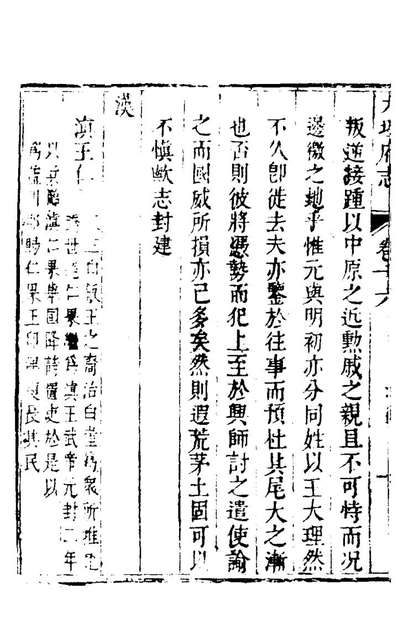 大理府志 卷十六
叛逆接踵以中原之近勲戚之親且不可恃而况
邊徼之地乎惟元與明初亦分同姓以王大理然
不久卽徙去夫亦鑒於往事而預杜其尾大之漸
也否則彼將憑勢而犯上至於興師討之遣使諭
之而國威所損亦已多矣然則遐荒茅土固可以
不慎歟志封建
漢
滇王仁
王白飯王之裔治白崖爲衆所推
世至仁果繼爲滇王武帝元封二年
以兵臨滇仁果舉國降請置吏於是以
爲益州郡賜仁果王印復長其民